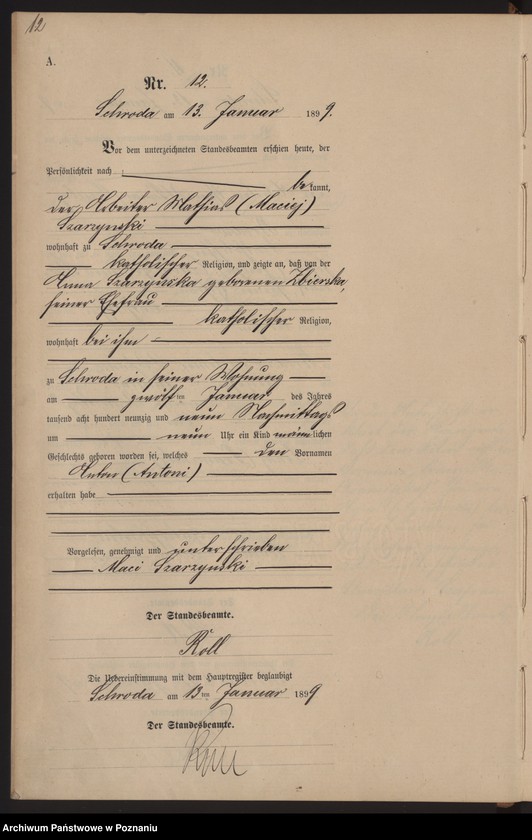 12
A.
Nr. 12.
Schroda am 13. Januar 1899.
Vor dem unterzeichneten Standesbeamten erschien heute, der
Persönlichkeit nach
bekannt,
der Arbeiter Mathias (Maciej)
Szarzynski
wohnhaft zu Schroda
katholischer Religion, und zeigte an, daß von der
Anna Szarzynska geborenen Zbierska,
seiner Ehefrau
katholischer Religion,
wohnhaft bei ihm
zu Schroda in seiner Wohnung
am zwölften Januar des Jahres
tausend acht hundert neunzig und neun Nachmittags
um neun Uhr ein Kind männlichen
Geschlechts geboren worden sei, welches den Vornamen
Anton (Antoni)
erhalten habe
Vorgelesen, genehmigt und unterschrieben
Maci Szarzynski
Der Standesbeamte.
Roll
Die Uebereinstimmung mit dem Hauptregister beglaubigt
Schroda am 13ten Januar 1899
Der Standesbeamte.
Roll
Archiwum Państwowe w Poznaniu